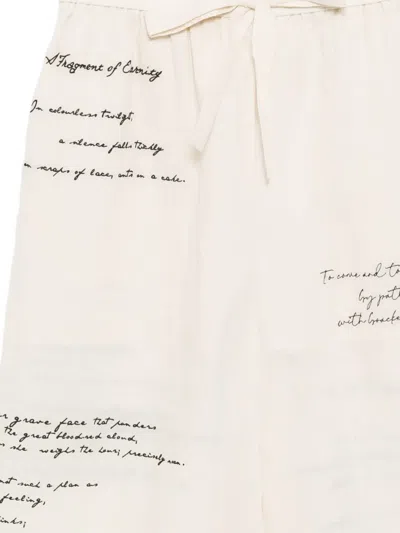 A Fragment of Eernity
In colourless twilgt,
a silence falls thickly
on scraps of lace, ants on a cake.
To come and to
by pat
with bracke
r grave face that ponders
the great bloodred cloud,
s she weighs the hour; precisely van.
not such a plan as
feeling,
inks;